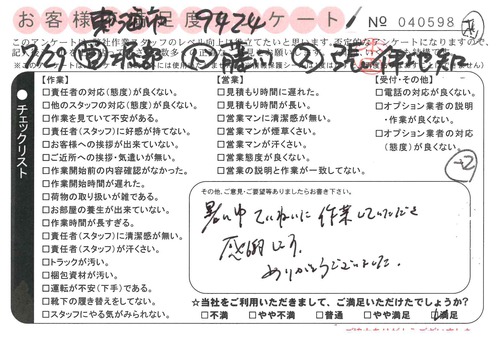 お客様満足度アンケート!
東海市 9424
№ 040598
このアンケートは
7/29
【作業】
□責任者の対応(態度)が良くない。
□他のスタッフの対応(態度)が良くない。
□作業を見ていて不安がある。
□責任者(スタッフ)に好感が持てない。
□お客様への挨拶が出来ていない。
□ご近所への挨拶・気遣いが無い。
□作業開始前の内容確認がなかった。
□作業開始時間が遅れた。
□荷物の取り扱いが雑である。
□お部屋の養生が出来ていない。
□作業時間が長すぎる。
□責任者(スタッフ)に清潔感が無い。
□責任者(スタッフ)が汗くさい。
□トラックが汚い。
□梱包資材が汚い。
□運転が不安(下手)である。
□靴下の履き替えをしてない。
□スタッフにやる気がみられない。
【営業】
□見積もり時間に遅れた。
□見積もり時間が長い。
□営業マンに清潔感が無い。
□営業マンが煙草くさい。
□営業マンが汗くさい。
□営業態度が良くない。
□営業の説明と作業が一致してない。
【受付・その他】
□電話の対応が良くない。
□オプション業者の説明
・作業が良くない。
□オプション業者の対応
(態度)が良くない。
チェックリスト
+2
その他、ご意見・ご要望等ありましたらお書き下さい。
暑い中ていねいに作業していただき
感謝します。
ありがとうございました。
☆当社をご利用いただきまして、ご満足いただけたでしょうか?
□不満 □やや不満 □普通 □やや満足 □満足